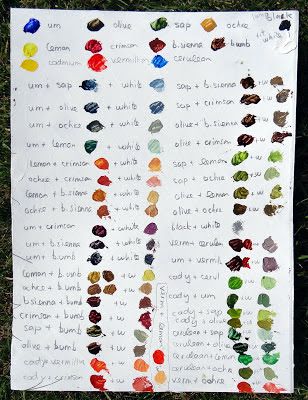 um olive sap ochre lamp black
+ white
lemon crimson b.sienna bumb
cadmium vermillion cerulean
um + sap + white
um + olive + white
um + ochre + white
um + lemon + white
lemon + crimson + white
ochre + crimson + white
lemon + b.sienna + white
ochre + b.sienna + white
um + crimson + white
um + b.sienna + white
um + bumb + white
lemon + b.umb + w
ochre + bumb + w
bsienna + bumb + w
crimson + bumb + w
sap + bumb + w
olive + bumb + w
cady +
cady + crimson
verm + lemon
sap + b.sienna +w
sap + crimson +w
olive + b.sienna +w
olive + crimson +w
sap + lemon +w
sap + ochre +w
olive + lemon +w
olive + ochre +w
black + white
verm + cerulean +w
um + verm +w
cady + cerul
cady + um
cady + sap
cady + olive
cerulean + sap
cerulean + olive
cerulean + lemon
cerulean + ochre
verm + ochre